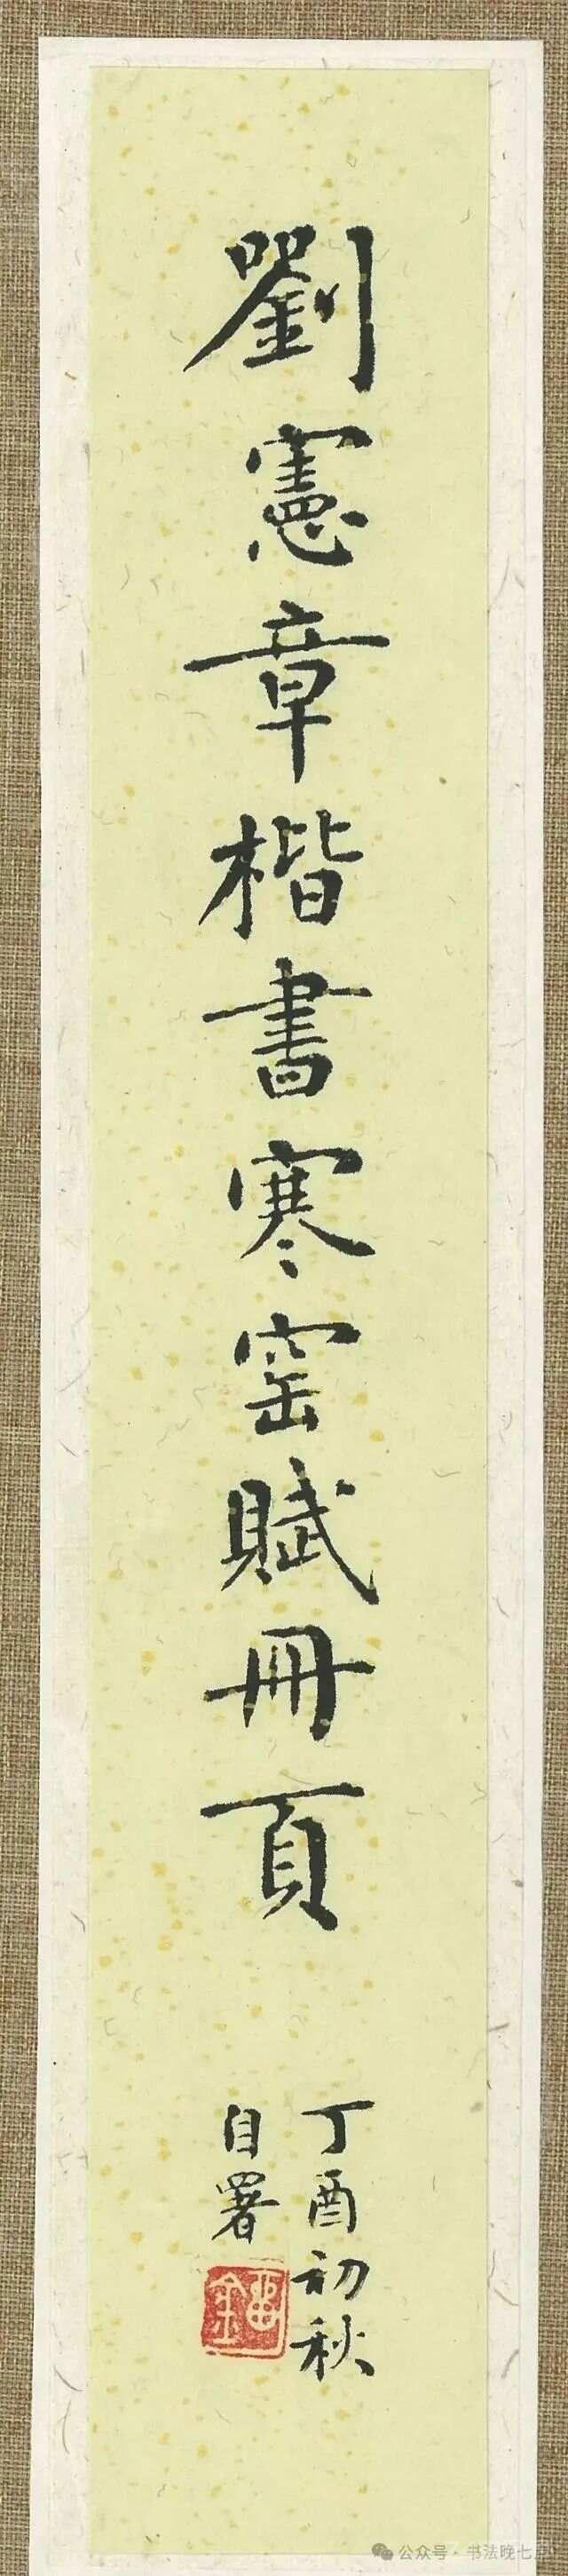 劉憲章楷書寒窑賦冊頁
丁酉初秋
自署
公众号·书法晚七点